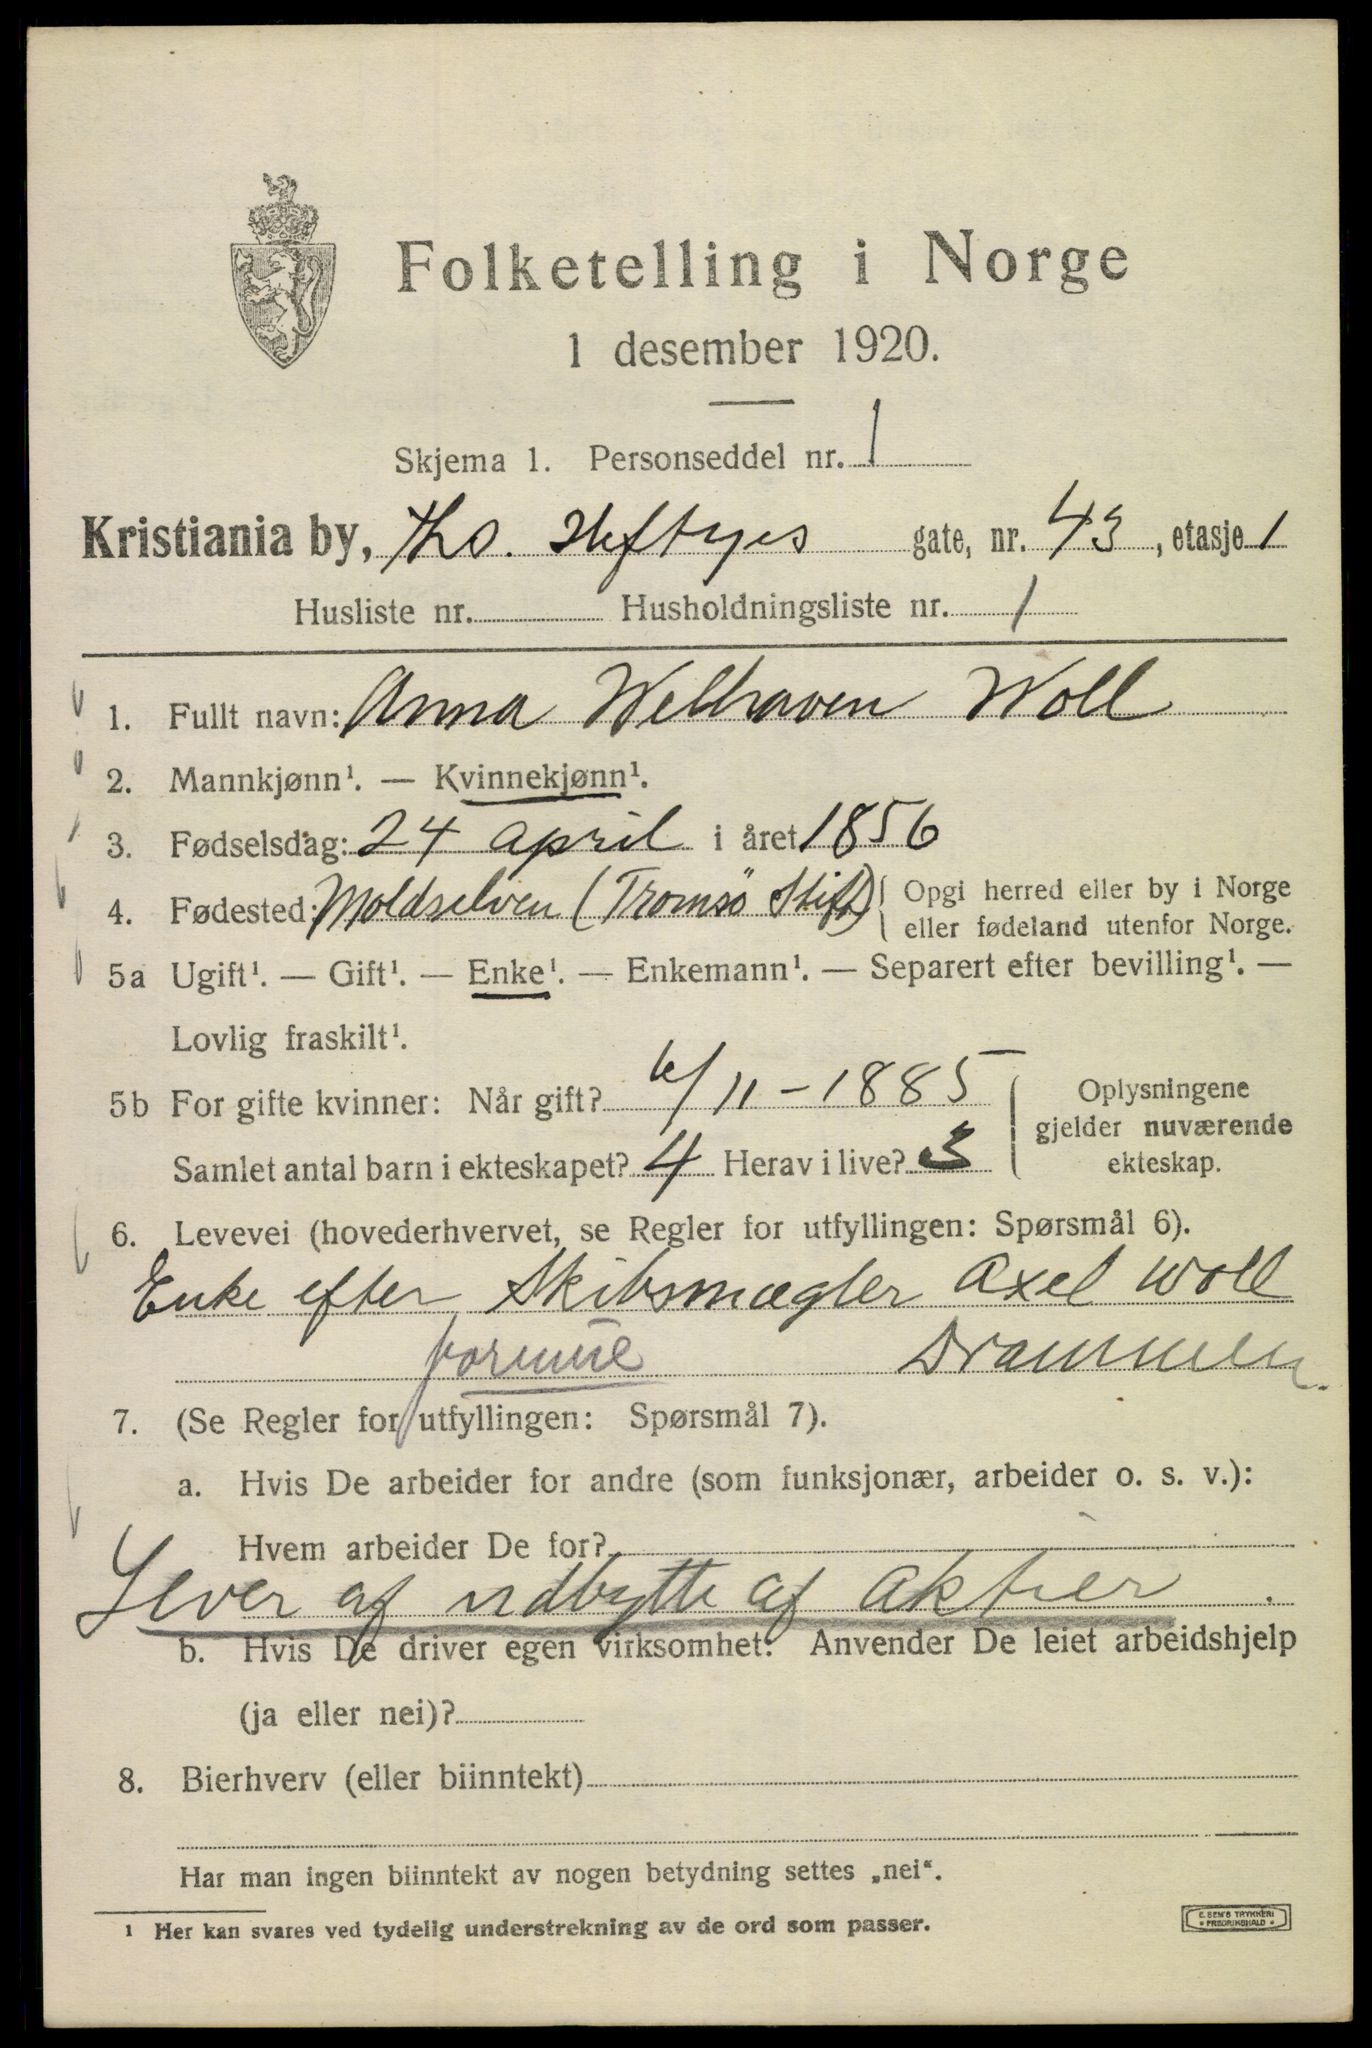 Folketelling i Norge
1 desember 1920.
Skjema 1. Personseddel nr. 1
Kristiania by, Ths. Heftyes gate, nr. 43, etasje 1
Husliste nr. Husholdningsliste nr. 1
1. Fullt navn: Anna Welhaven Woll
2. Mannkjønn¹. — Kvinnekjønn¹.
3. Fødselsdag: 24 april i året 1856
4. Fødested: Moldselven (Tromsö Stift) Opgi herred eller by i Norge
eller fødeland utenfor Norge.
5a Ugift¹. — Gift¹. — Enke¹. — Enkemann¹. — Separert efter bevilling¹. —
Lovlig fraskilt¹.
5b For gifte kvinner: Når gift? 6/11 - 1885 Oplysningene
gjelder nuværende
Samlet antal barn i ekteskapet? 4 Herav i live? 3 ekteskap.
6. Levevei (hovederhvervet, se Regler for utfyllingen: Spørsmål 6).
Enke efter Skibsmægler Axel Woll
formue Drammen.
7. (Se Regler for utfyllingen: Spørsmål 7).
a. Hvis De arbeider for andre (som funksjonær, arbeider o. s. v.):
Hvem arbeider De for?
Lever af udbytte af aktier
b. Hvis De driver egen virksomhet: Anvender De leiet arbeidshjelp
(ja eller nei)?
8. Bierhverv (eller biinntekt)
Har man ingen biinntekt av nogen betydning settes „nei“.
¹ Her kan svares ved tydelig understrekning av de ord som passer.
E. SEM'S TRYKKERI
FREDRIKSHALD